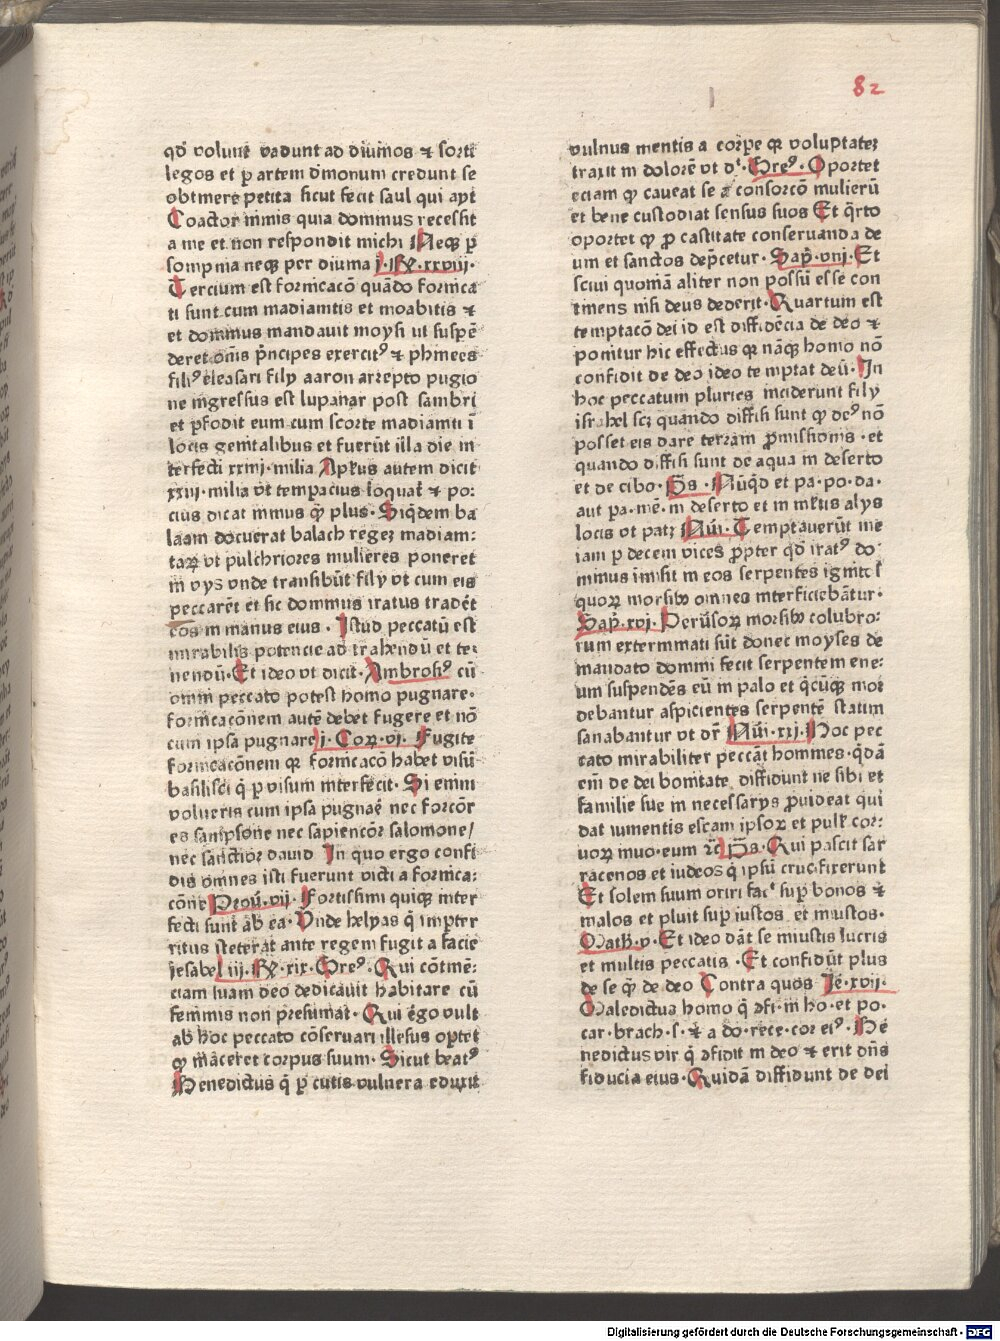 82
qđ volunt vadunt ad diuinos ⁊ sorti
legos et p artem d̄monum credunt se
obtinere petita sicut fecit saul qui ayt
Coactor nimis quia dominus recessit
a me et non respondit michi Neqʒ p̄
sompnia neqʒ per diuina j·Rꝝ·xxviij·
Tercium est fornicacō quādo fornica
ti sunt cum madianitis et moabitis ⁊
et dominus mandauit moysi ut suspē
deret om̄is p̄ncipes exercitꝰ ⁊ phinees
filiꝰ eleasari fily aaron arrepto pugio
ne ingressus est lupanar post sambri
et p̄fodit eum cum scorte madianiti ī
locis genitalibus et fuerūt illa die in
terfecti xxiiij·milia Apl̄us autem dicit
xxiij·milia vt̄ tempacius loquat̄ ⁊ po:
cius dicat minus qꝫ plus·Siqͥdem ba
laam docuerat balach regeʒ madian:
taꝝ vt pulchriores mulieres poneret
in vys vnde transibūt fily vt cum eis
peccarēt et sic dominus iratus tradēt
eos in manus eius·Istud peccatū est
mirabilis potencie ad trahendū et te:
nendū·Et ideo vt dicit·Ambrosiꝰ cū
omni peccato potest homo pugnare·
fornicacōnem autē debet fugere et nō
cum ipsa pugnare j·Coꝝ·vj·Fugite
fornicacōnem qꝛ fornicacō habet visū
basilisci q̄ p visum interfecit·Si enim
volueris cum ipsa pugnaē nec forcōr
es sampsone nec sapiencōr salomone/
nec sanctior dauid In quo ergo confi
dis omnes isti fuerunt victi a fornica:
cōne Prou̅·vij·Fortissimi quiqʒ inter
fecti sunt ab ea·Vnde helyas q̄ impter
ritus steterat ante regem fugit a facie
iesabel iij·Rꝝ·xix·Greꝰ·Qui cōtinē:
ciam suam deo dedicauit habitare cū
feminis non p̄resumat·Qui ēgo vult
ab hoc peccato cōseruari illesus optet
qꝫ māceret corpus suum·Sicut beatꝰ
Benedictus q̄ p cutis vulnera eduxit
vulnus mentis a corpe qꝛ voluptateʒ
traxit in dolorē vt dͥ·Greꝰ·Oportet
eciam qꝫ caueat se a consorcō mulierū
et bene custodiat sensus suos Et q̄rto
oportet qꝫ pro castitate conseruanda de
um et sanctos dep̄cetur·Sap̄·viij·Et
sciui quoniā aliter non possū esse con
tinens nisi deus dederit·Quartum est
temptacō dei id est diffidēcia de deo ⁊
ponitur hic effectus qꝛ nāqʒ homo nō
confidit de deo ideo temptat deū·In
hoc peccatum pluries inciderunt fily
israhel scʒ quando diffisi sunt qꝫ deꝰ nō
posset eis dare terram p̄missionis·et
quando diffisi sunt de aqua in deserto
et de cibo·Ps̄·Nūq̄d et pa·po·da·
aut pa·mē·in deserto et in ml̄tis alys
locis vt patʒ Nūi·Temptauerūt me
iam p decem vices p̄pter qđ iratꝰ do
minus imisit in eos serpentes ignitos
quoꝝ morsibʒ omnes interficiebātur·
Sap̄·xvj·Peruſoꝝ morsibʒ colubro:
rum exterminati sūt donec moyses de
mandato domini fecit serpentem ene:
um suspendēs eū in palo et q̄cūqʒ mor
debantur aspicientes serpentē statim
sanabantur vt dr̄ Nūi·xxj·Hoc pec
cato mirabiliter peccāt hommes·q̄dā
em̄ de dei bonitate diffidunt ne sibi et
familie sue in necessarys p̄uideat qui
dat iumentis escam ipsoꝝ et pull̄ cor:
uoꝝ inuo·eum ⁊c̄ Ps̄·Qui pascit sar
racenos et iudeos q̄ ipsū crucifixerunt
Et solem suum oriri facͭ sup̄ bonos ⁊
malos et pluit sup̄ iustos et iniustos·
Math̄·v·Et ideo dāt se iniustis lucris
et multis peccatis·Et confidūt plus
de se qꝫ de deo Contra quos Ie·xvij·
Maledictus homo q̄ ꝯfi·in ho·et po·
car·brach·s·⁊ a do·rece·cor eiꝰ·Be
nedictus vir q̄ ꝯfidit in deo ⁊ erit dn̄s
fiducia eius·Quidā diffidunt de dei
Digitalisierung gefördert durch die Deutsche Forschungsgemeinschaft - DFG